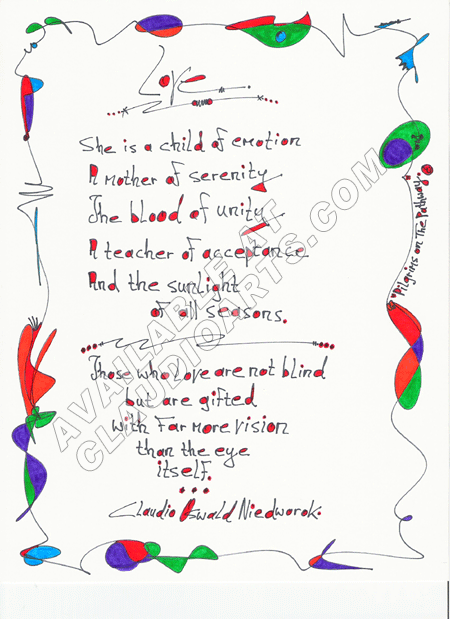 Love
She is a child of emotion
A mother of serenity
The blood of unity
A teacher of acceptance
And the sunlight
of all seasons.
Those who Love are not blind
but are gifted
with Far more vision
than the eye
itself.
Claudio Oswald Niedworok.
Pilgrims on The Pathway.
AVAILABLE AT
CLAUDIOARTS.COM